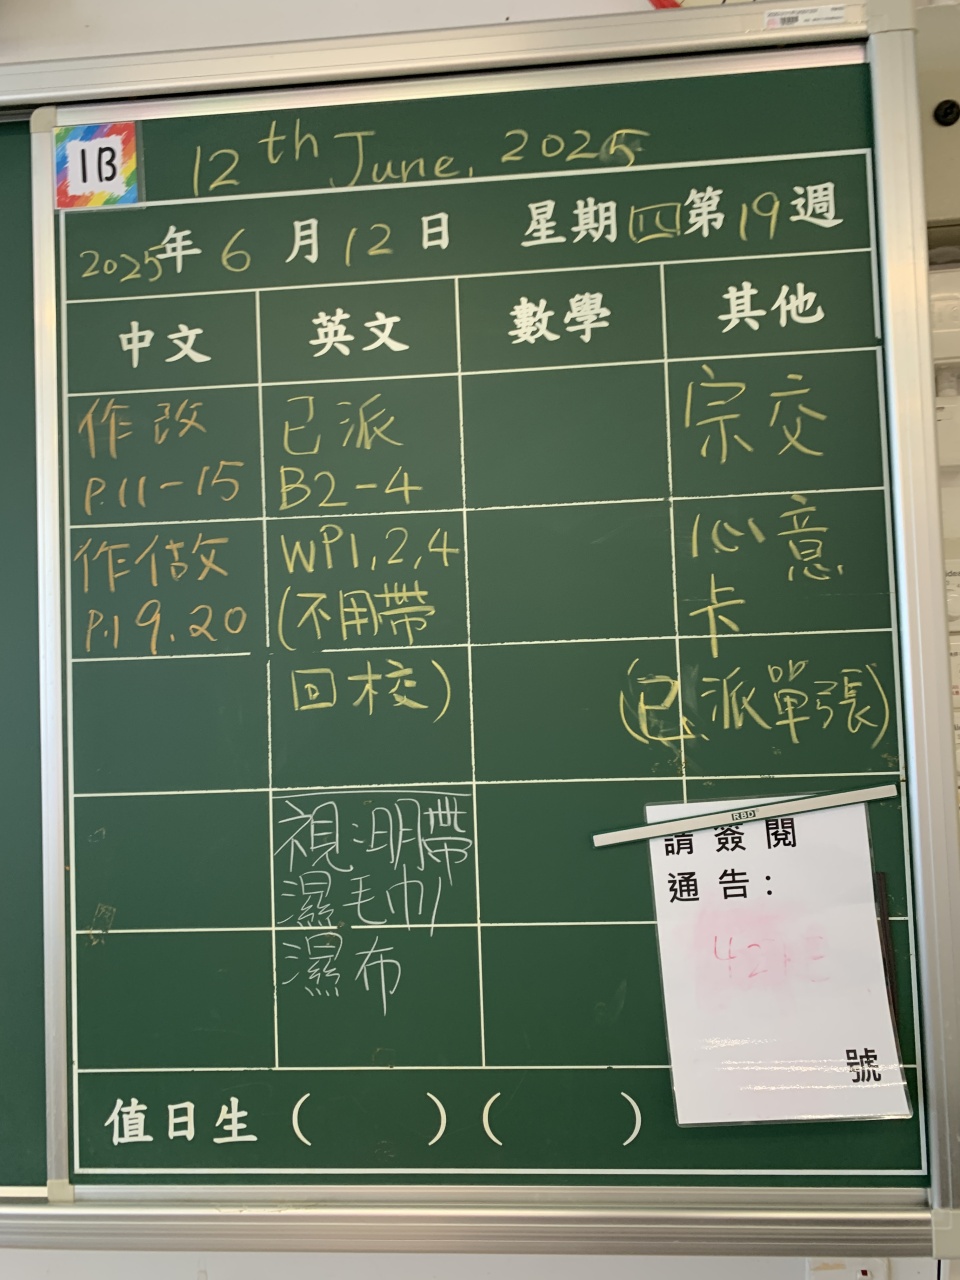 1B
12th June, 2025
2025年6月12日 星期四第19週
中文 英文 數學 其他
作改
P.11-15
作做
P.19.20
已派
B2-4
WP1,2,4
(不用帶
回校)
視:明帶
濕毛巾/
濕布
宗交
心意
卡
(已派單張)
RBD
請簽閱
通告:
號
值日生( )( )